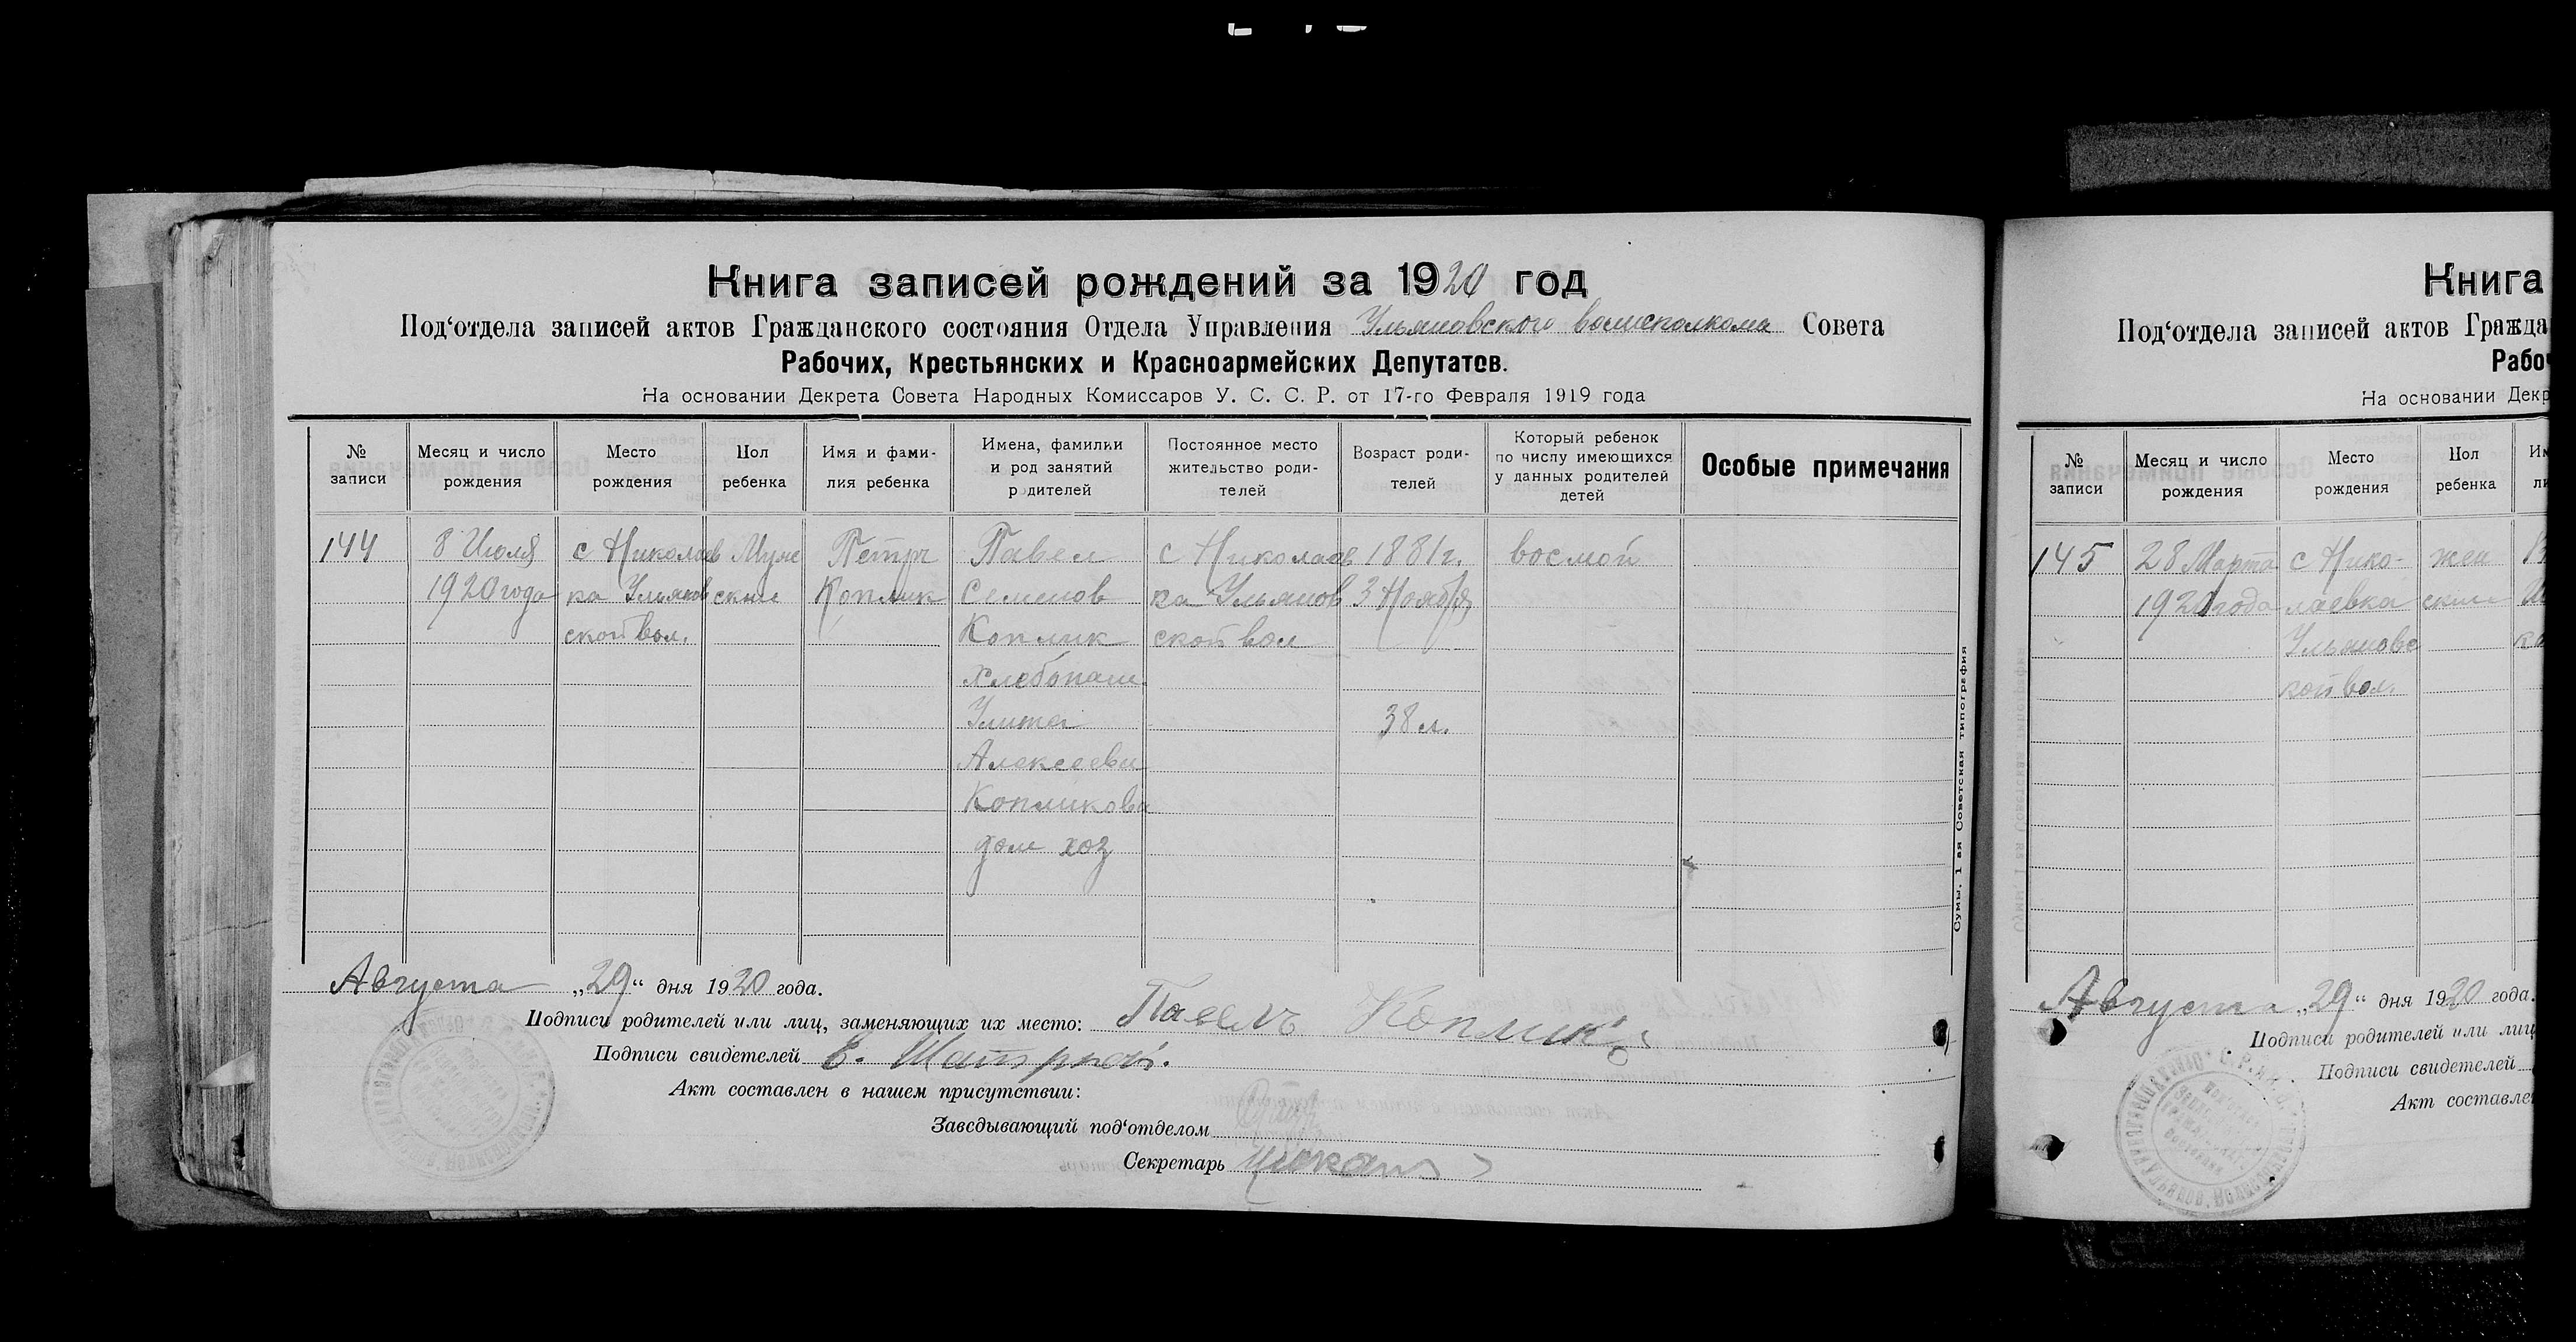 Книга записей рождений за 1920 год
Под‘отдела записей актов Гражданского состояния Отдела Управления Ульяновского волисполкома Совета
Рабочих, Крестьянских и Красноармейских Депутатов.
На основании Декрета Совета Народных Комиссаров У. С. С. Р. от 17-го Февраля 1919 года
№ записи
Месяц и число рождения
Место рождения
Пол ребенка
Имя и фами-лия ребенка
Имена, фамилии и род занятий родителей
Постоянное место жительство роди-телей
Возраст роди-телей
Который ребенок по числу имеющихся у данных родителей детей
Особые примечания
144 8 Июля с Николаев Муж Петр Павел с Николаев 1881г. восмой
1920 года ка Ульянов ский Коплик Семенов ка Ульянов 3 Ноября
ской вол. Коплик ской вол
хлебопаш.
Улита 38 л.
Алексеевн
Копликова
дом хоз
Сумы, 1-ая Советская типография
Августа „29“ дня 1920 года.
Подписи родителей или лиц, заменяющих их место: Павелъ Коплик
Подписи свидетелей
Акт составлен в нашем присутствии:
Заведывающий под‘отделом
Секретарь
Книга
Под‘отдела записей актов Гражда
Рабоч
На основании Декр
№ записи
Месяц и число рождения
Место рождения
Пол ребенка
145 28 Марта с Нико- жен
1920 года лаевка ский
Ульяновс
кой вол.
Августа „29“ дня 1920 года.
Подписи родителей или лиц
Подписи свидетелей
Акт составле